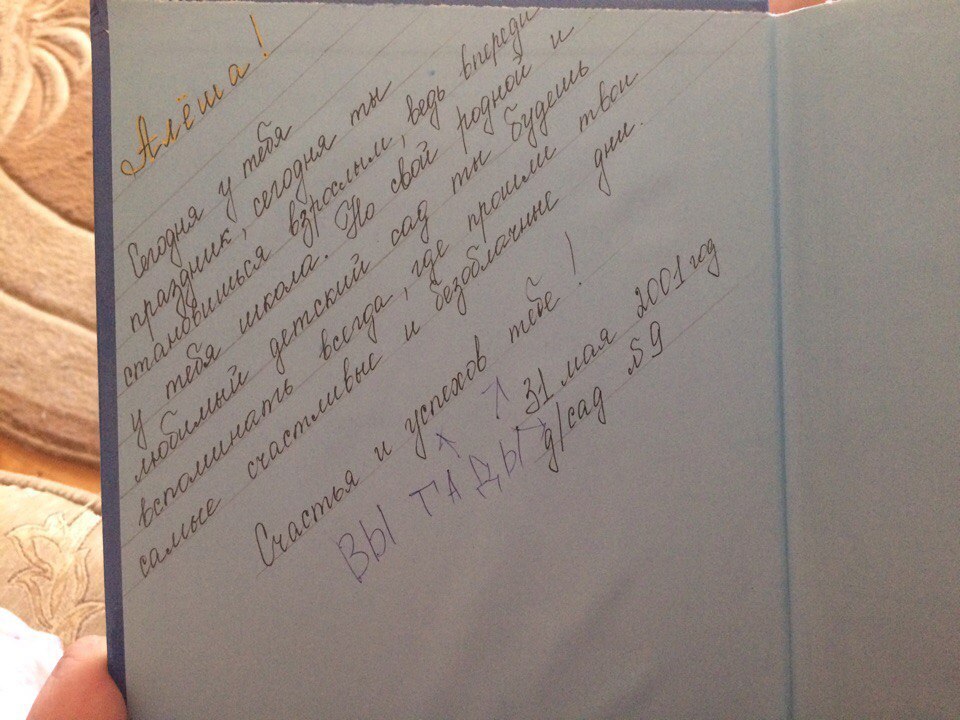 Алёша!
Сегодня у тебя
праздник, сегодня ты
становишься взрослым, ведь впереди
у тебя школа. Но свой родной и
любимый детский сад ты будешь
вспоминать всегда, где прошли твои
самые счастливые и безоблачные дни.
Счастья и успехов тебе!
31 мая 2001 год
д/сад №9
ВЫ ГАДЫ